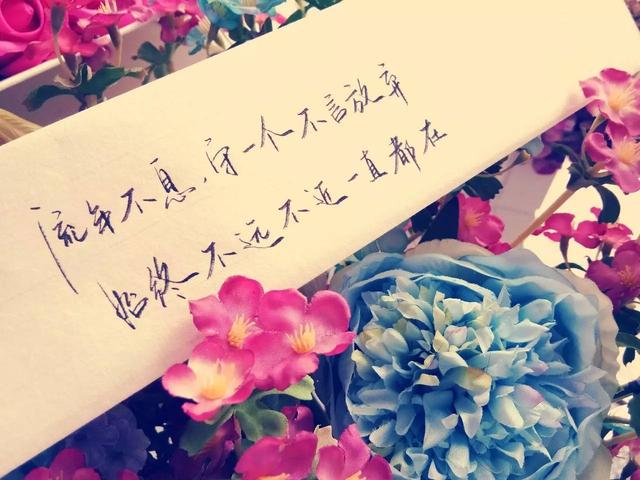 流年不息，守一个不言放弃
始终不远不近一直都在